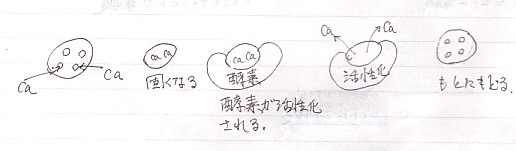 Ca
Ca
Ca Ca
固くなる
Ca Ca
酵素
酵素が活性化
される。
Ca
Ca
活性化
もとにもどる.